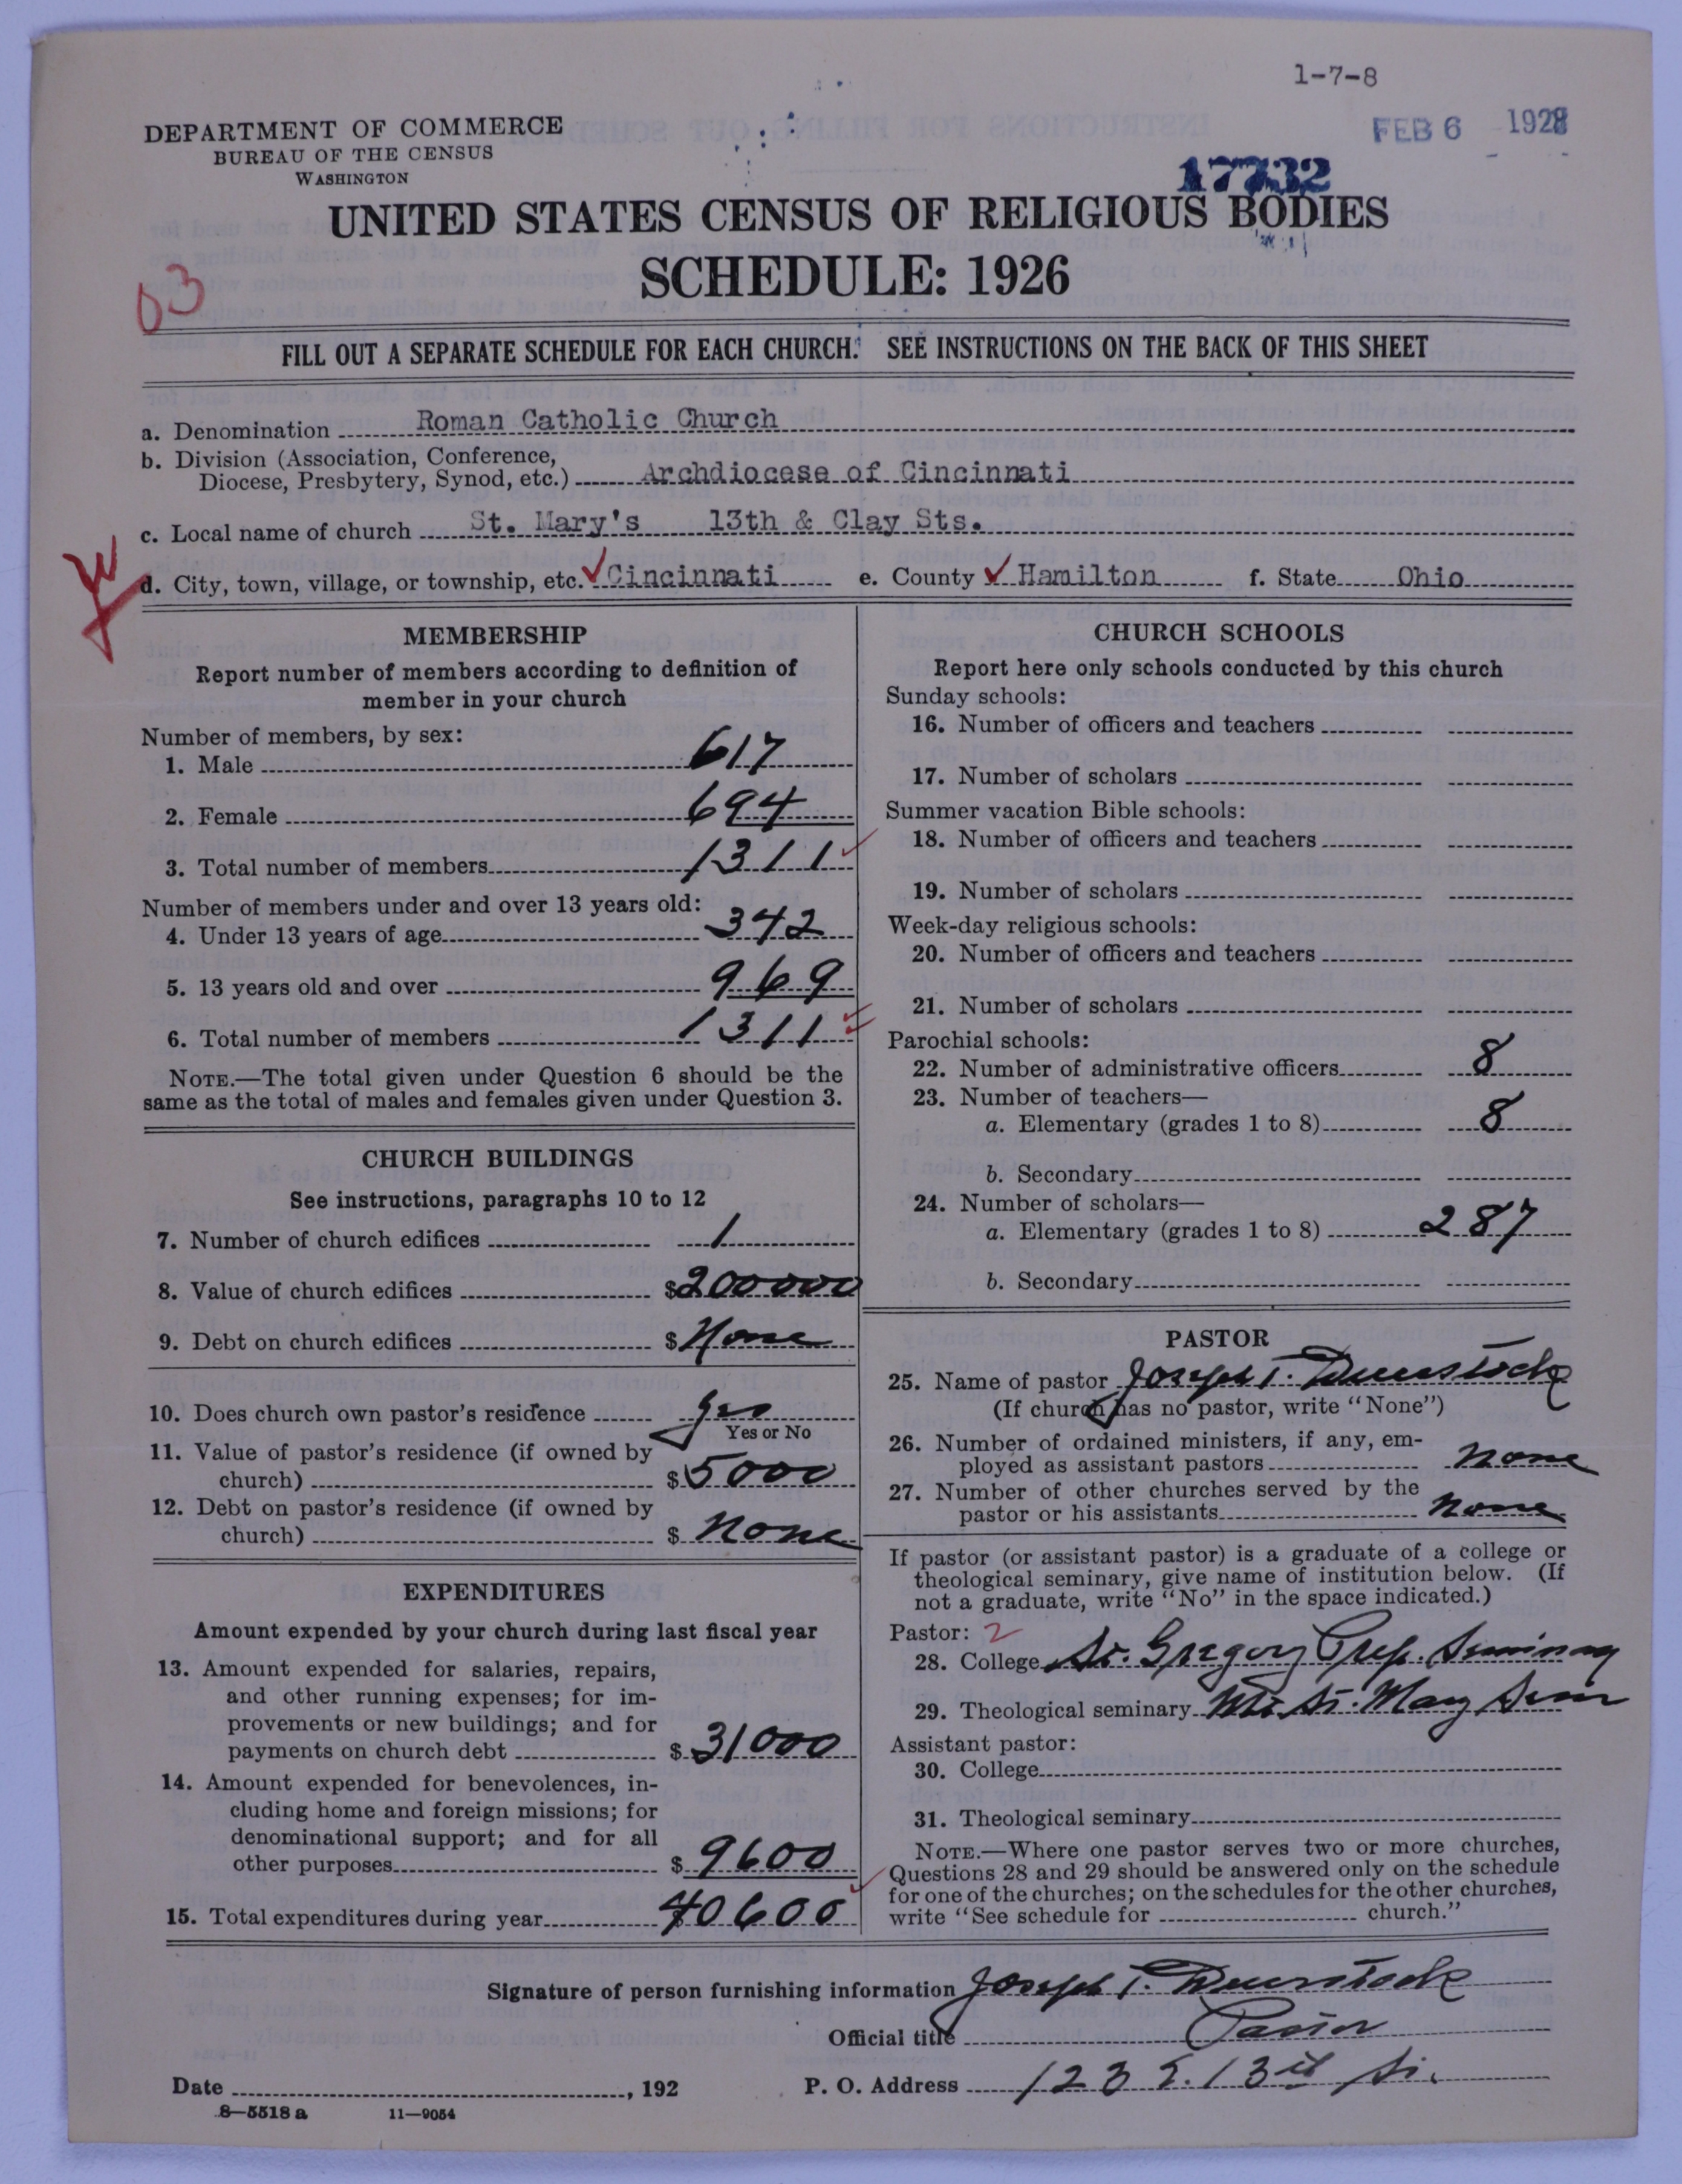 1-7-8
DEPARTMENT OF COMMERCE
BUREAU OF THE CENSUS
WASHINGTON
FEB 6 1928
17732
UNITED STATES CENSUS OF RELIGIOUS BODIES
SCHEDULE: 1926
03
FILL OUT A SEPARATE SCHEDULE FOR EACH CHURCH. SEE INSTRUCTIONS ON THE BACK OF THIS SHEET
a. Denomination Roman Catholic Church
b. Division (Association, Conference,
Diocese, Presbytery, Synod, etc.) Archdiocese of Cincinnati
c. Local name of church St. Mary's 13th & Clay Sts.
d. City, town, village, or township, etc. Cincinnati e. County Hamilton f. State Ohio
MEMBERSHIP
Report number of members according to definition of
member in your church
Number of members, by sex:
1. Male 617
2. Female 694
3. Total number of members 1311
Number of members under and over 13 years old:
4. Under 13 years of age 342
5. 13 years old and over 969
6. Total number of members 1311
NOTE.—The total given under Question 6 should be the
same as the total of males and females given under Question 3.
CHURCH BUILDINGS
See instructions, paragraphs 10 to 12
7. Number of church edifices 1
8. Value of church edifices $200000
9. Debt on church edifices $ None
10. Does church own pastor's residence yes
Yes or No
11. Value of pastor's residence (if owned by
church) $5000
12. Debt on pastor's residence (if owned by
church) $ None
EXPENDITURES
Amount expended by your church during last fiscal year
13. Amount expended for salaries, repairs,
and other running expenses; for im-
provements or new buildings; and for
payments on church debt $ 31000
14. Amount expended for benevolences, in-
cluding home and foreign missions; for
denominational support; and for all
other purposes $ 9600
15. Total expenditures during year 40600
CHURCH SCHOOLS
Report here only schools conducted by this church
Sunday schools:
16. Number of officers and teachers
17. Number of scholars
Summer vacation Bible schools:
18. Number of officers and teachers
19. Number of scholars
Week-day religious schools:
20. Number of officers and teachers
21. Number of scholars
Parochial schools:
22. Number of administrative officers 8
23. Number of teachers—
a. Elementary (grades 1 to 8) 8
b. Secondary
24. Number of scholars—
a. Elementary (grades 1 to 8) 287
b. Secondary
PASTOR
25. Name of pastor Joseph T. Duerstock
(If church has no pastor, write "None")
26. Number of ordained ministers, if any, em-
ployed as assistant pastors none
27. Number of other churches served by the
pastor or his assistants none
If pastor (or assistant pastor) is a graduate of a college or
theological seminary, give name of institution below. (If
not a graduate, write "No" in the space indicated.)
Pastor: 2
28. College St. Gregory Prep. Seminary
29. Theological seminary Mt. St. Mary Sem
Assistant pastor:
30. College
31. Theological seminary
NOTE.—Where one pastor serves two or more churches,
Questions 28 and 29 should be answered only on the schedule
for one of the churches; on the schedules for the other churches,
write "See schedule for church."
Signature of person furnishing information Joseph T. Duerstock
Official title Pastor
Date , 192 P. O. Address 123 E. 13th St.
8—5518 a 11—9054